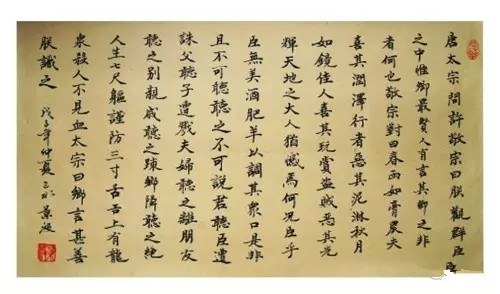 唐太宗問許敬宗曰朕觀群臣
之中惟卿最賢人有言其卿之非
者何也敬宗對曰春雨如膏農夫
喜其潤澤行者惡其泥淋秋月
如鏡佳人喜其玩賞盜賊惡其光
輝天地之大人猶憾焉何況臣乎
臣無美酒肥羊以調其眾口是非
且不可聽聽之不可說君聽臣遭
誅父聽子遭戮夫婦聽之離朋友
聽之別親戚聽之疎鄉鄰聽之絕
人生七尺軀謹防三寸舌舌上有龍
泉殺人不見血太宗曰卿言甚善
朕識之 戊子年仲夏